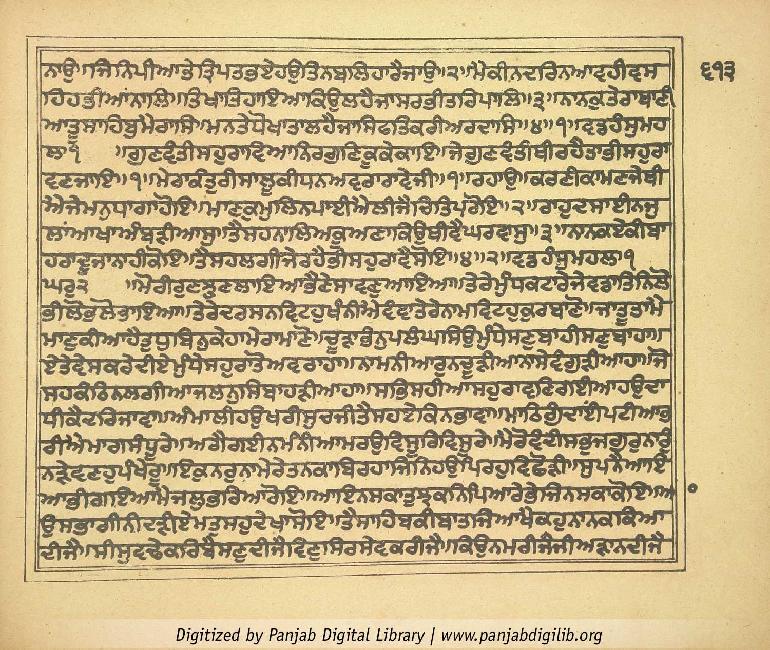 ਨਾਉ॥ਜਿਨਿਪੀਆਤੇਤ੍ਰਿਪਤਭਏਹਉਤਿਨਬਲਿਹਾਰੈਜਾਉ॥੨॥ਮੈਕੀਨਦਰਿਨਆਵਹੀਵਸ
ਹਿਹਭੀਆਂਨਾਲਿ॥ਤਿਖਾਤਿਹਾਇਆਕਿਉਲਹੈਜਾਸਰਭੀਤਰਿਪਾਲਿ॥੩॥ਨਾਨਕੁਤੇਰਾਬਾਣੀ
ਆਤੂਸਾਹਿਬੁਮੈਰਾਸਿ॥ਮਨਤੇਧੋਖਾਤਾਲਹੈਜਾਸਿਫਤਿਕਰੀਅਰਦਾਸਿ॥੪॥੧॥ਵਡਹੰਸੁਮਹ
ਲਾ੧ ॥ਗੁਣਵੰਤੀਸਹੁਰਾਵਿਆਨਿਰਗੁਣਿਕੂਕੇਕਾਇ॥ਜੇਗੁਣਵੰਤੀਥੀਰਹੈਤਾਭੀਸਹੁਰਾ
ਵਣਜਾਇ॥੧॥ਮੇਰਾਕੰਤੁਰੀਸਾਲੂਕੀਧਨਅਵਰਾਰਾਵੇਜੀ॥੧॥ਰਹਾਉ॥ਕਰਣੀਕਾਮਣਜੇਥੀ
ਐਜੇਮਨੁਧਾਗਾਹੋਇ॥ਮਾਣਕੁਮੁਲਿਨਪਾਈਐਲੀਜੈਚਿਤਿਪਰੋਇ॥੨॥ਰਾਹੁਦਸਾਈਨਜੁ
ਲਾਂਆਖਾਂਅੰਮੜੀਆਸੁ॥ਤੈਸਹਨਾਲਿਅਕੂਅਣਾਕਿਉਥੀਵੈਘਰਵਾਸੁ॥੩॥ਨਾਨਕਏਕੀਬਾ
ਹਰਾਦੂਜਾਨਾਹੀਕੋਇ॥ਤੈਸਹਲਗੀਜੇਰਹੈਭੀਸਹੁਰਾਵੈਸੋਇ॥੪॥੨॥ਵਡਹੰਸੁਮਹਲਾ੧
ਘਰੁ੨ ॥ਮੋਰੀਰੁਣਝੁਣਲਾਇਆਭੈਣੇਸਾਵਣੁਆਇਆ॥ਤੇਰੇਮੁੰਧਕਟਾਰੇਜੇਵਡਾਤਿਨਿਲੋ
ਭੀਲੋਭਲੋਭਾਇਆ॥ਤੇਰੇਦਰਸਨਵਿਟਹੁਖੰਨੀਐਵੰਞਾਤੇਰੇਨਾਮਵਿਟਹੁਕੁਰਬਾਣੋ॥ਜਾਤੂਤਾਮੈ
ਮਾਣੁਕੀਆਹੈਤੁਧੁਬਿਨੁਕੇਹਾਮੇਰਾਮਾਣੋ॥ਚੂੜਾਭੰਨੁਪਲੰਘਸਿਉਮੁੰਧੇਸਣੁਬਾਹੀਸਣੁਬਾਹਾ॥
ਏਤੇਵੇਸਕਰੇਦੀਏਮੁੰਧੇਸਹੁਰਾਤੋਅਵਰਾਹਾ॥ਨਾਮਨੀਆਰੁਨਚੂੜੀਆਨਾਸੇਵੰਗੁੜੀਆਹਾ॥ਜੋ
ਸਹਕੰਠਿਨਲਗੀਆਜਲਨੁਸਿਬਾਹੜੀਆਹਾ॥ਸਭਿਸਹੀਆਸਹੁਰਾਵਣਿਗਈਆਹਉਦਾ
ਧੀਕੈਦਰਿਜਾਵਾ॥ਅੰਮਾਲੀਹਉਖਰੀਸੁਚਜੀਤੈਸਹਏਕਿਨਭਾਵਾ॥ਮਾਠਿਗੁੰਦਾਈਪਟੀਆਭ
ਰੀਐਮਾਗਸੰਧੂਰੇ॥ਅਗੈਗਈਨਮੰਨੀਆਮਰਉਵਿਸੂਰਿਵਿਸੂਰੇ॥ਮੈਰੋਵੰਦੀਸਭੁਜਗੁਰੁਨਾਰੁੰ
ਨੜੇਵਣਹੁਪੰਖੇਰੂ॥ਇਕੁਨਰੁਨਾਮੇਰੇਤਨਕਾਬਿਰਹਾਜਿਨਿਹਉਪਿਰਹੁਵਿਛੋੜੀ॥ਸੁਪਨੈਆਇ
ਆਭੀਗਇਆਮੈਜਲੁਭਰਿਆਰੋਇ॥ਆਇਨਸਕਾਤੁਝਕਨਿਪਿਆਰੇਭੇਜਿਨਸਕਾਕੋਇ॥ਆ
ਉਸਭਾਗੀਨੀਦੜੀਏਮਤੁਸਹੁਦੇਖਾਸੋਇ॥ਤੈਸਾਹਿਬਕੀਬਾਤਜਿਆਖੈਕਹੁਨਾਨਕਕਿਆ
ਦੀਜੈ॥ਸੀਸੁਵਢੇਕਰਿਬੈਸਣੁਦੀਜੈਵਿਣੁਸਿਰਸੇਵਕਰੀਜੈ॥ਕਿਉਨਮਰੀਜੈਜੀਅੜਾਨਦੀਜੈ
੬੧੩
Digitized by Panjab Digital Library | www.panjabdigilib.org